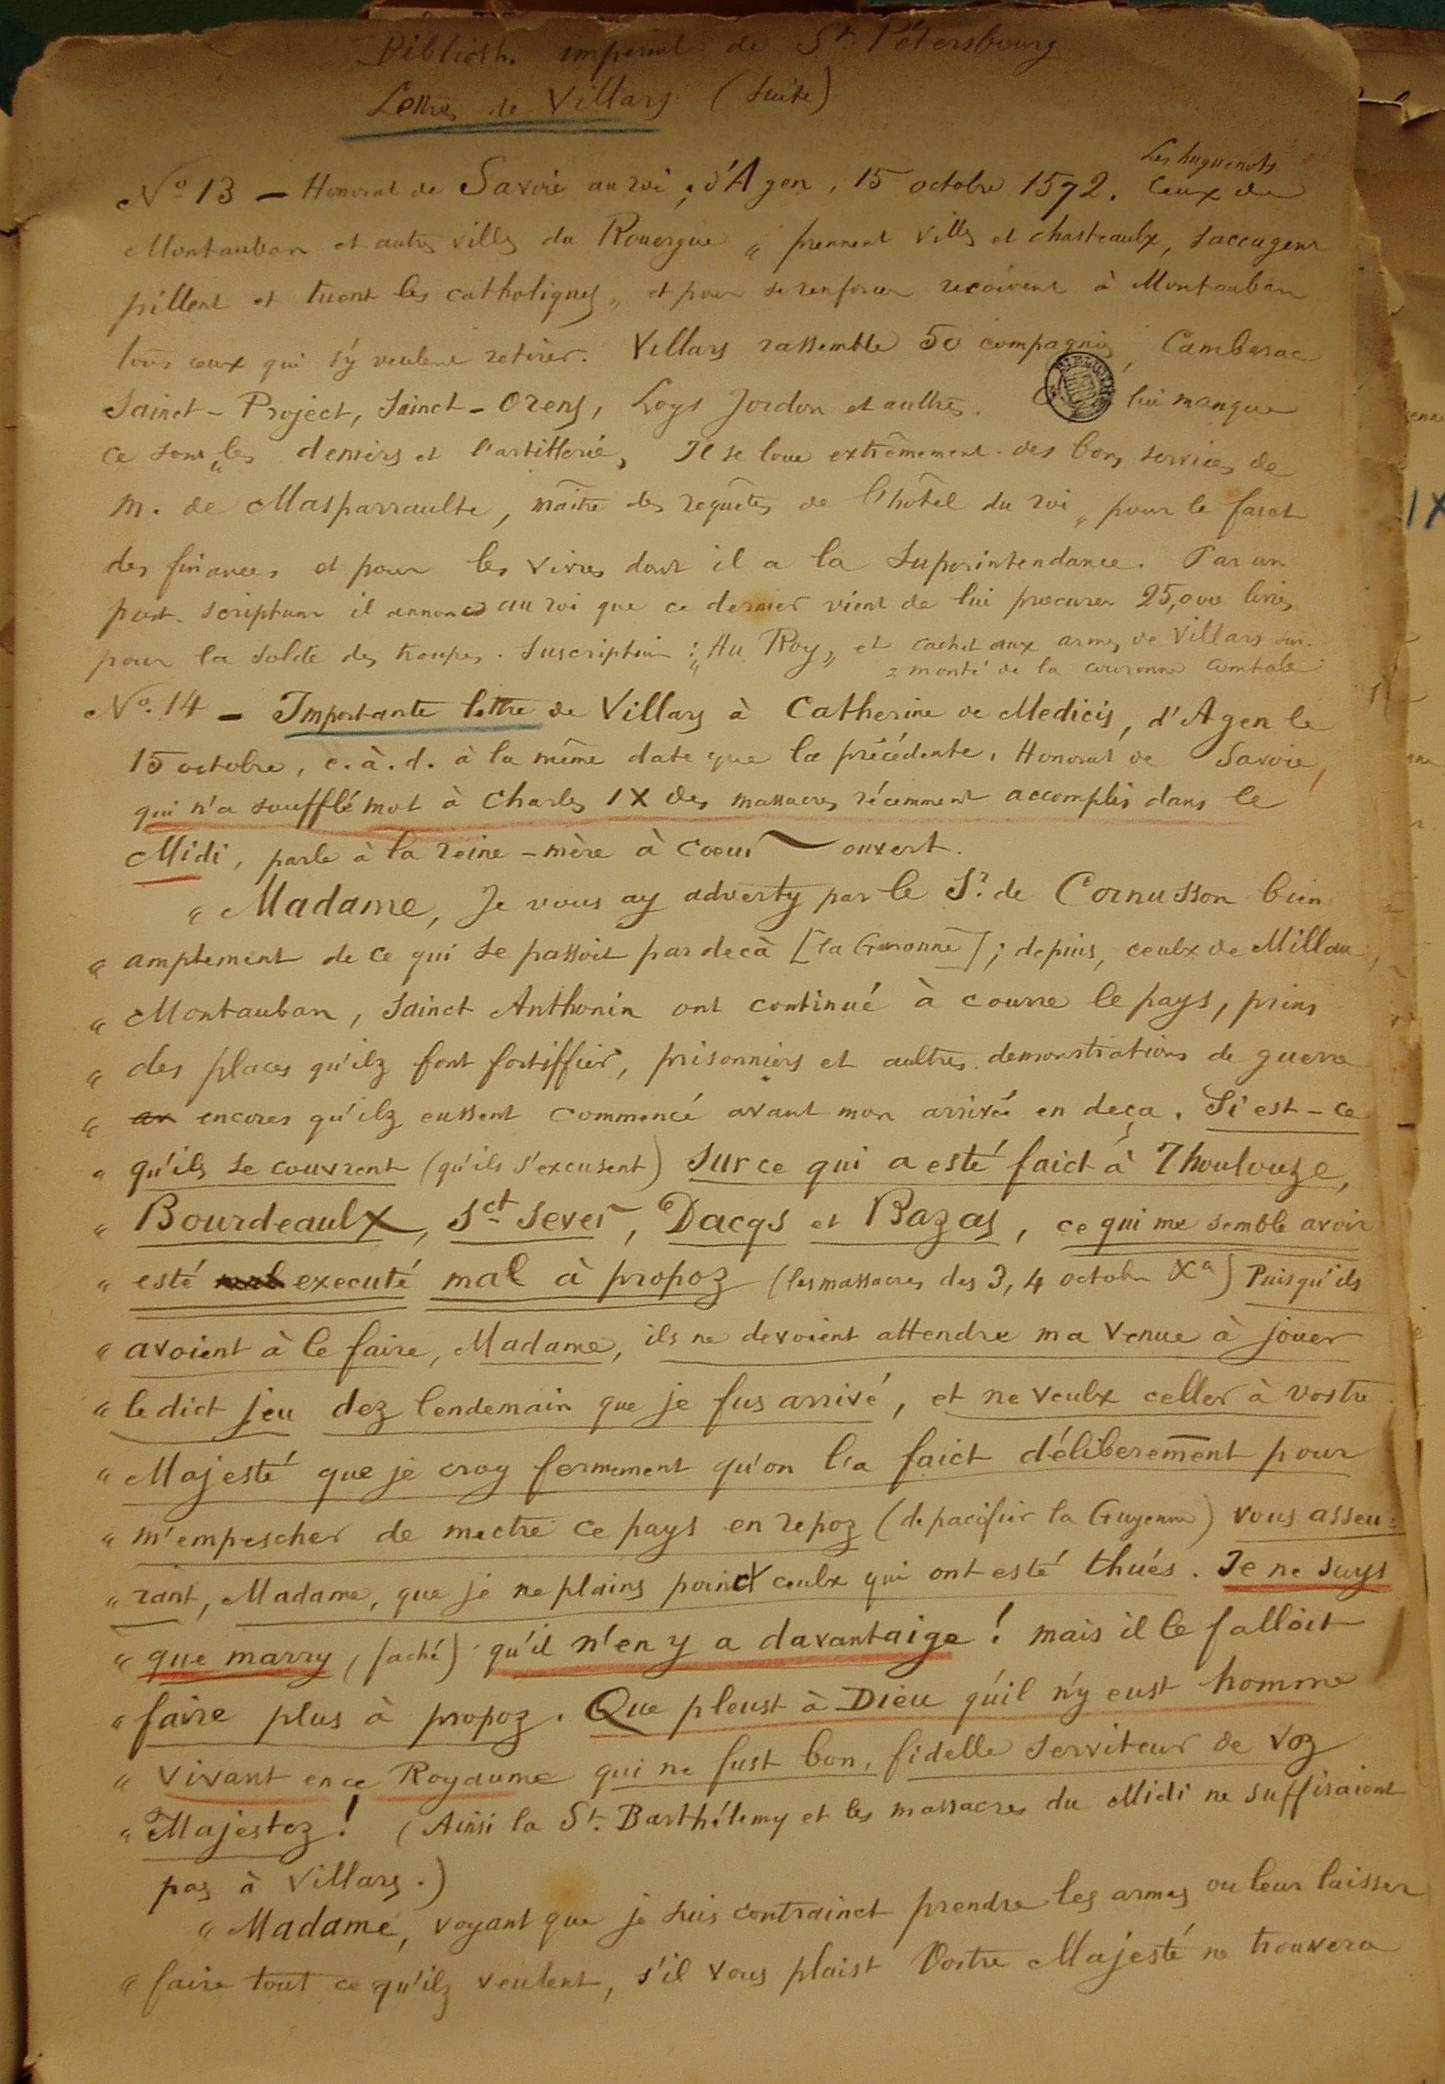 Biblioth. imperiale de St. Pétersbourg
Lettres de Villars (suite)
Les huguenots
No 13 — Honorat de Savoie au roi, d'Agen, 15 octobre 1572. Ceux de
Montauban et autres villes du Rouergue " prennent villes et chasteaulx, saccagent
pillent et tuent les catholiques " et pour se renforcer reçoivent à Montauban
tous ceux qui s'y veulent retirer. Villars rassemble 50 compagnies, Camberac
Sainct-Project, Sainct-Orens, Loys Jordon et aultres. lui manque
ce sont " les deniers et l'artillerie, Il se loue extrêmement des bons services de
M. de Masparraulte, maître des requêtes de l'hôtel du roi, pour le faict
des finances et pour les vivres dont il a la superintendance. Par un
post-scriptum il annonce au roi que ce dernier vient de lui procurer 25,000 livres
pour la solde des troupes. Suscription : " Au Roy " et cachet aux armes de Villars sur-
= monté de la couronne comtale
No. 14 — Importante lettre de Villars à Catherine de Medicis, d'Agen le
15 octobre, c.à.d. à la même date que la précédente. Honorat de Savoie,
qui n'a soufflé mot à Charles IX des massacres récemment accomplis dans le
Midi, parle à la reine-mère à coeur ouvert.
" Madame, Je vous ay adverty par le Sr. de Cornusson bien
" amplement de ce qui se passoit par decà [la Garonne]; depuis, ceulx de Millau,
" Montauban, Sainct Anthonin ont continué à courre le pays, prins
" des places qu'ilz font fortiffier, prisonniers et aultres demonstrations de guerre
" encores qu'ilz eussent commencé avant mon arrivée en deça. Si est-ce
" qu'ils se couvrent (qu'ils s'excusent) sur ce qui a esté faict à Thoulouze,
" Bourdeaulx, Sct Sever, Dacqs et Bazas, ce qui me semble avoir
" esté executé mal à propoz (les massacres des 3, 4 octobre Xa) Puisqu'ils
" avoient à le faire, Madame, ils ne devoient attendre ma venue à jouer
" le dict jeu dez lendemain que je fus arrivé, et ne veulx celler à vostre
" Majesté que je croy fermement qu'on l'a faict déliberement pour
" m'empescher de mectre ce pays en repoz (de pacifier la Guyenne) vous asseu=
" rant, Madame, que je ne plains poinct ceulx qui ont esté thués. Je ne suys
" que marry (faché) qu'il n'en y a davantaige ! mais il le falloit
" faire plus à propoz. Que pleust à Dieu qu'il n'y eust homme
" vivant en ce Royaume qui ne fust bon, fidelle serviteur de voz
" Majestez ! (Ainsi la St. Barthélemy et les massacres du Midi ne suffisaient
pas à Villars.)
" Madame, voyant que je suis contrainct prendre les armes ou leur laisser
" faire tout ce qu'ilz veulent, s'il vous plaist Vostre Majesté ne trouvera